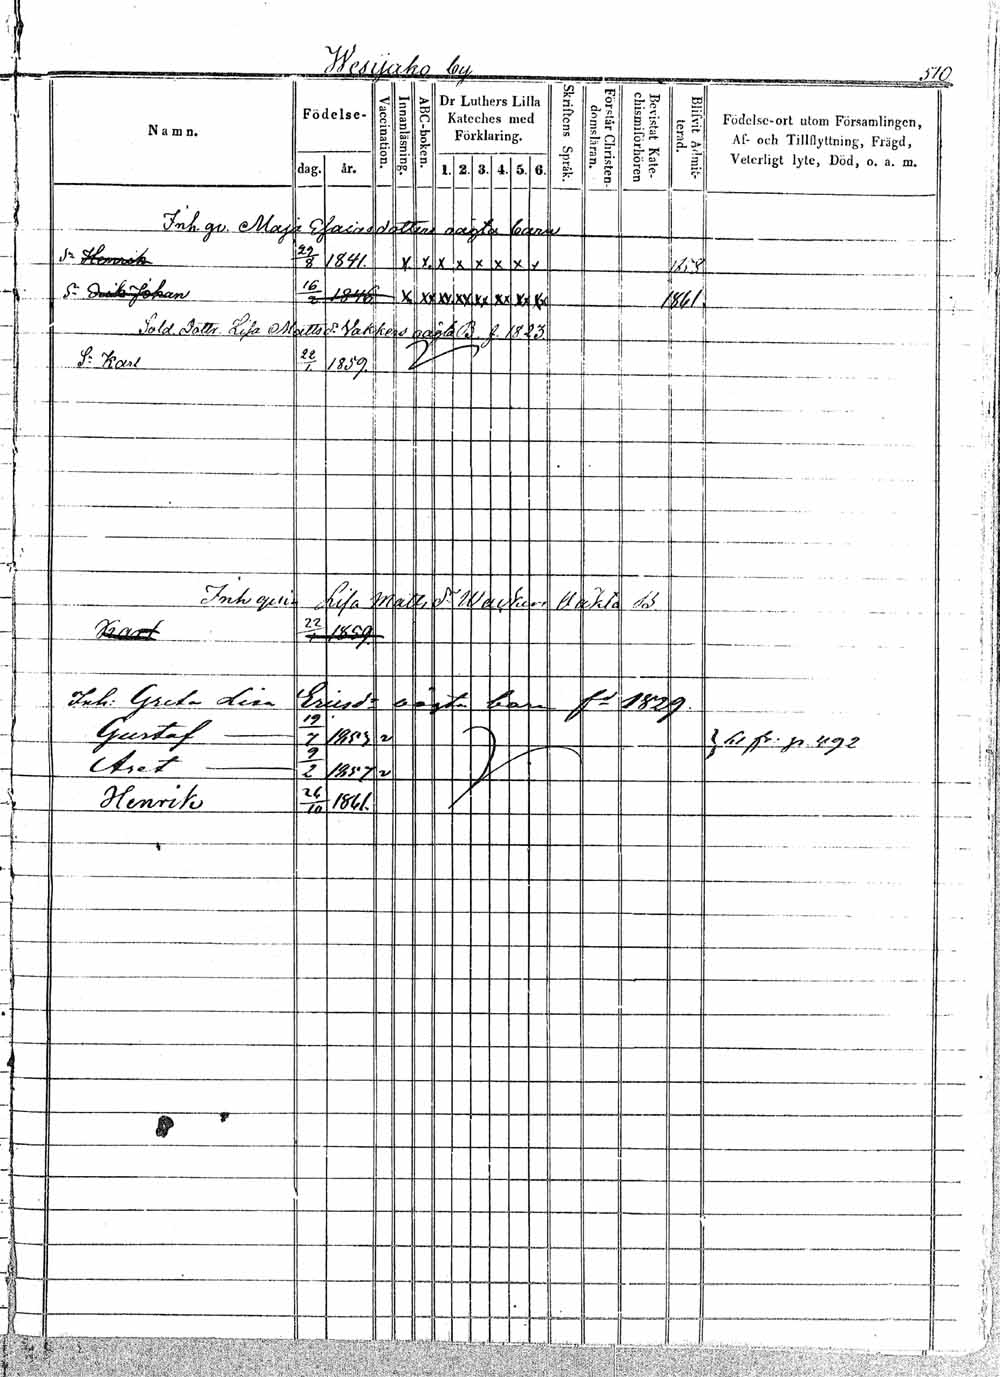 Wesijako by
510
Namn.
Födelse-
dag.
år.
Vaccination.
Innanläsning.
ABC-boken.
Dr Luthers Lilla
Kateches med
Förklaring.
1. 2. 3. 4. 5. 6.
Skriftens Språk.
Förstår Christen-
domsläran.
Bevistat Kate-
chismiförhören
Blifvit Admit-
terad.
Födelse-ort utom Församlingen,
Af- och Tillflyttning, Frägd,
Veterligt lyte, Död, o. a. m.
Inh. qv. Maja Esaiasdotters oägta barn
Sn Henrik 22/8 1841. x x. x x x x x x 1858
Sn Johan 16/2 1846 x xx xx xx xx xx xx xx 1861.
Sold. Dottr. Lisa Matts dr Vakkers oägta B. f. 1823.
Sn Karl 22/1 1859.
Inh qvin Lisa Matts dr oäkta B
Karl 22/1 1859.
Inh: Greta Lisa Ericsdr oägta barn fd 1829.
Gustaf 19/7 1853 v } fr. p. 492
Axel 9/2 1857 v
Henrik 26/10 1861.